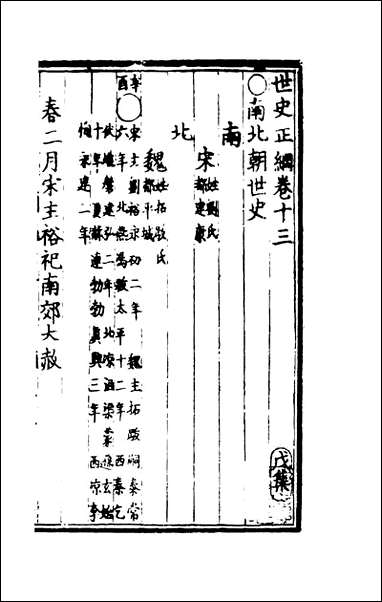 世史正綱卷十三
○南北朝世史
戊集
南
宋 姓劉氏
都建康
北
魏 姓拓跋氏
都平城
辛酉
○宋主劉裕永初二年 魏主拓跋嗣泰常
六年北燕馮跋太平十二年西秦乞
伏熾磐建弘二年北凉沮渠蒙遜玄始
十年夏赫連勃勃眞興三年西凉李
恂永建二年
春二月宋主裕祀南郊大赦